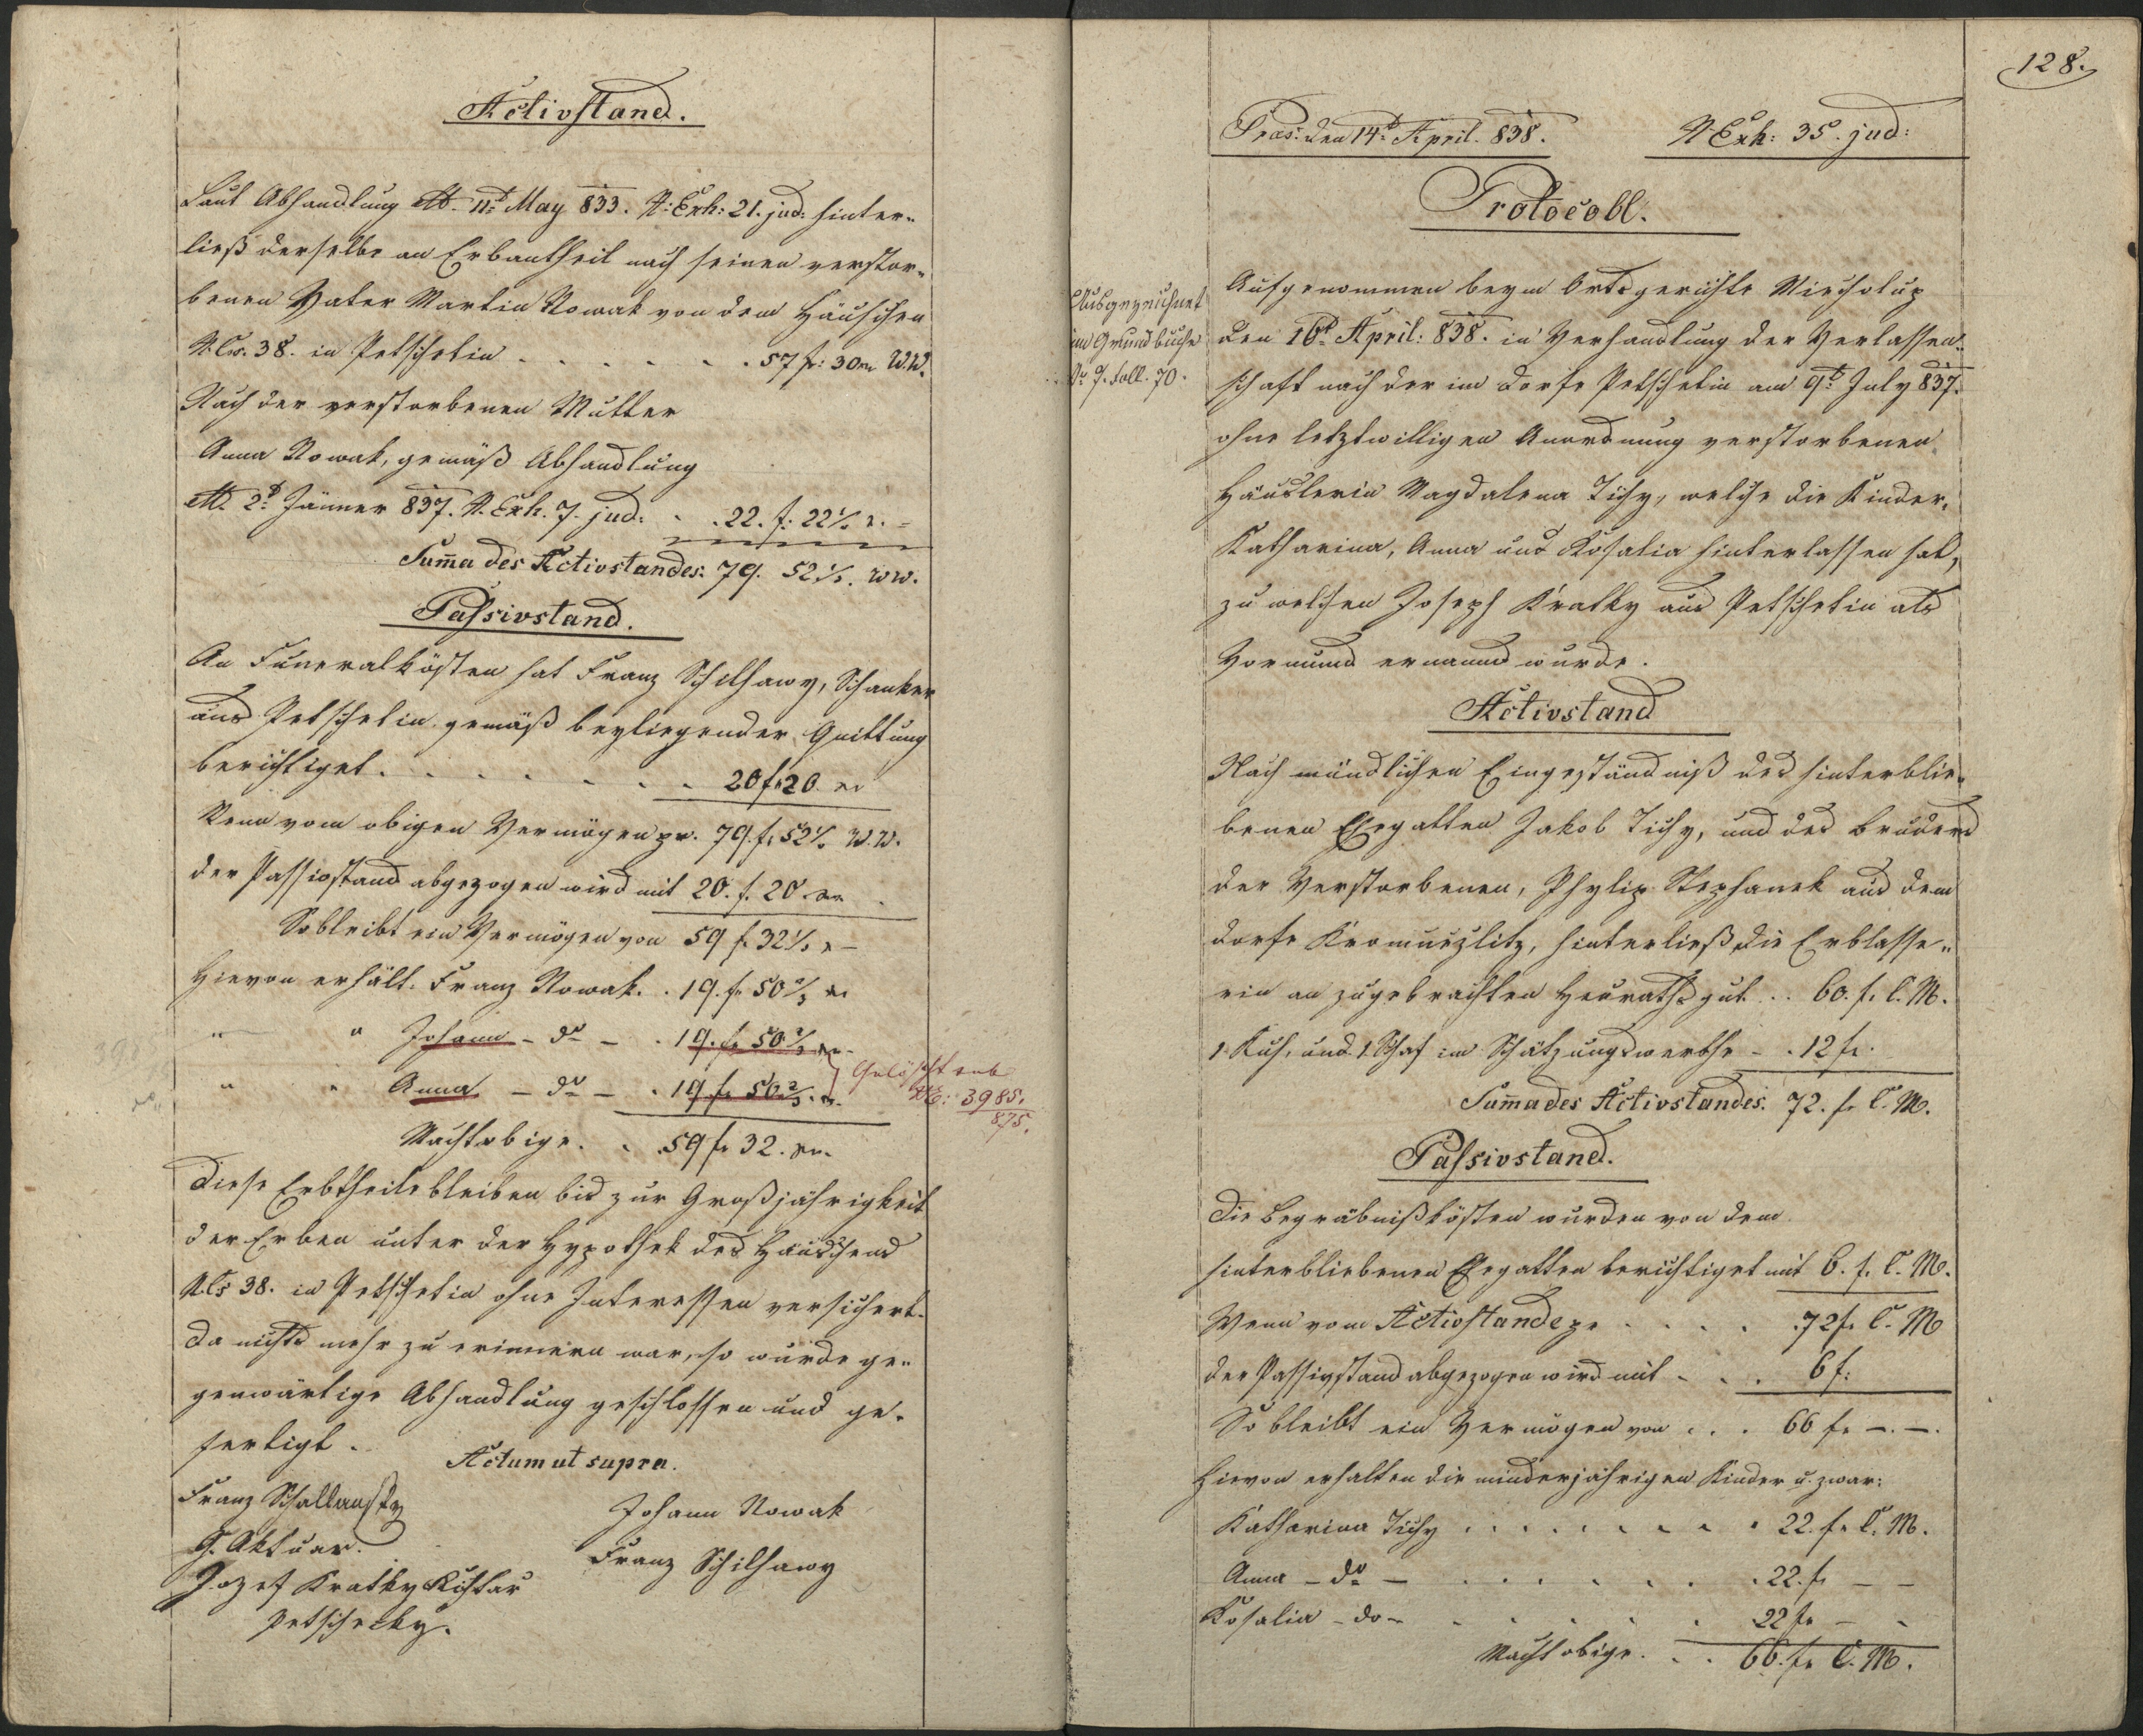 Activstand.
Laut Abhandlung dtto 11t May 833. N: Exh: 21. jud: hinter„
ließ derselbe an Erbantheil nach seinen verstor„
benen Vater Martin Nowak von dem Häuschen
N. Cs. 38. in Petschetin . . . . . . 57 f: 30 xr W.W.
Nach der verstorbenen Mutter
Anna Nowak, gemäß Abhandlung
dtto 2t Jänner 837. N. Exh. 7. jud: . . 22. f: 22½ x. =
Suma des Activstandes: 79. 52½. WW.
Passivstand.
An Funeralkösten hat Franz Schilhawy, Schanker
aus Petschetin gemäß beyliegender Quittung
berichtiget . . . . . . . 20 f 20 xr
Wenn vom obigen Vermögen pr. 79. f. 52½ W.W.
der Passivstand abgezogen wird mit 20. f. 20 xr
So bleibt ein Vermögen von 59 f 32½ x –
Hievon erhält. Franz Nowak. . 19. f. 50 2/3 xr
„ „ Johann – do – . 19. f. 50 2/3 xr
„ „ Anna – do – . 19 f. 50 2/3 xr } Gelöscht sub
NE: 3985.
875.
Macht obige. . . 59 f 32. xr.
Diese Erbtheile bleiben bis zur Großjährigkeit
der Erben unter der Hypothek des Häuschens
N Cs 38. in Petschetin ohne Interessen versichert.
Da nichts mehr zu erinnern war, so wurde ge„
genwärtige Abhandlung geschlossen und ge„
fertigt.
Actum ut supra.
Franz Schallansky
G. Aktuar.
Jozef Kratky Richtar
Petschecky.
Johann Nowak
Franz Schilhawy
128.
Præs: den 14t April. 838.
N. Exh: 35. jud:
Protocoll.
Ausgezeichnet
im Grundbuche
N. 7. Foll. 70.
Aufgenommen beym Ortsgerichte Miecholup
den 16t April: 838. in Verhandlung der Verlassen„
schaft nach der im Dorfe Petschetin am 9t July 837.
ohne letztwilligen Anordnung verstorbenen
Häuslerin Magdalena Tichy, welche die Kinder,
Katharina, Anna und Rosalia hinterlassen hat,
zu welchen Joseph Kratky aus Petschetin als
Vormund ernannd wurde.
Activstand
Nach mündlichen Eingeständniß des hinterblie„
benen Ehegatten Jakob Tichy, und des Bruders
der Verstorbenen, Phylip Stephanek aus dem
Dorfe Kromuezlitz, hinterließ die Erblasse„
rin an zugebrachten Heurathsgut . . 60. f. C. M.
1 Kuh, und 1 Schaf im Schätzungswerthe – . 12 f.
Suma des Activstandes. 72. f. C. M.
Passivstand.
Die Begräbnißkösten wurden von dem
hinterbliebenen Ehegatten berichtiget mit 6. f. C. M.
Wenn vom Activstande pr . . . . . 72 f. C. M
der Passivstand abgezogen wird mit . . . 6 f:
So bleibt ein Vermögen von . . . 66 f. –. –.
Hievon erhalten die minderjährigen Kinder u. zwar:
Katharina Tichy . . . . . . . . 22. f. C. M.
Anna – do – . . . . . . . 22. f. – –
Rosalia – do – . . . . . . 22 f. – –
Macht obige. . . 66. f. C. M.